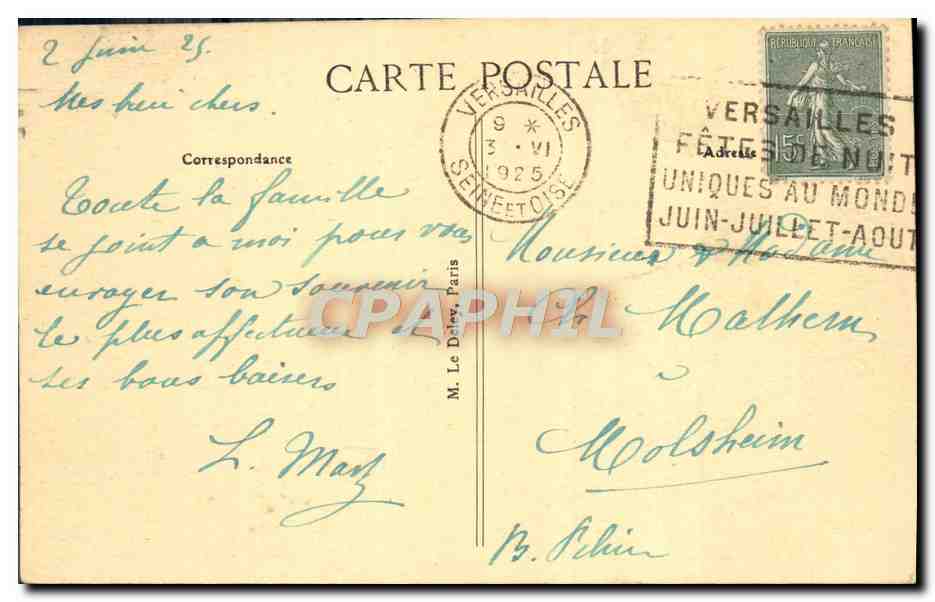 2 Juin 25.
Mes bien chers
Toute la famille
se joint a moi pour vous
envoyer son souvenir
le plus affectueux et
ses bons baisers
CARTE POSTALE
Correspondance
M. Le Deley, Paris
VERSAILLES
9 *
3 · VI
1925
SEINE ET OISE
RÉPUBLIQUE FRANÇAISE
15c
VERSAILLES
FÊTES DE NUIT
UNIQUES AU MONDE
JUIN-JUILLET-AOUT
Adresse
Monsieur & Madame
à
Molsheim
B. Rhin
CPAPHIL